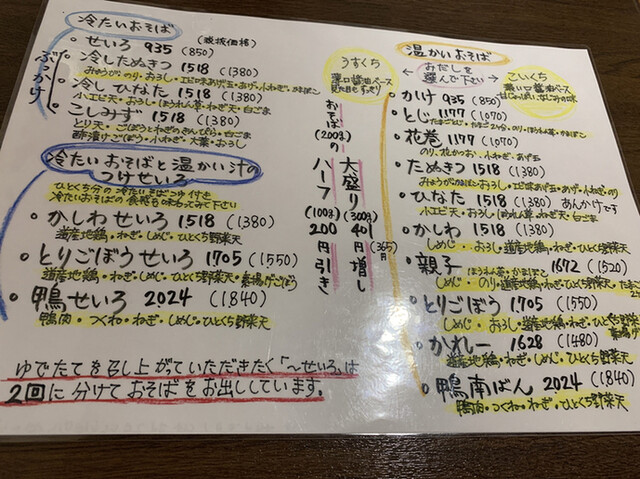 冷たいおそば
(税抜価格)
ぶっかけ
せいろ 935 (850)
冷したぬきつ 1518 (1380)
冷し ひなた 1518 (1380)
小エビ天・おろし・ほうれん草・ねぎ天・白ごま
こしみず 1518 (1380)
とり天・ごぼうとねぎのきんぴら・白ごま
酢漬けごぼう・小ねぎ・大葉・おろし
冷たいおそばと温かい汁の
つけせいろ
ひとくち分の冷たいそばつゆ付き
冷たいおそばの食感も味わってみて下さい
かしわせいろ 1518 (1380)
道産地鶏・ねぎ・しめじ・ひとくち野菜天
とりごぼうせいろ 1705 (1550)
道産地鶏・ねぎ・しめじ・ひとくち野菜天・素揚げごぼう
鴨せいろ 2024 (1840)
鴨肉・つくね・ねぎ・しめじ・ひとくち野菜天
ゆでたてを召し上がっていただきたく「〜せいろ」は
2回に分けておそばをお出ししています。
おそば(200g)の
ハーフ(100g) 200円引き
大盛り(300g) 401(365)円増し
温かいおそば
おだしを
選んで下さい
うすくち
薄口醤油ベース
こいくち
濃い口醤油ベース
かけ 935 (850)
とじ 1177 (1070)
花巻 1177 (1070)
のり、花かつお、小ねぎ、あげ玉
たぬきつ 1518 (1380)
ひなた 1518 (1380) あんかけです
小エビ天・おろし・ほうれん草・ねぎ天・白ごま
かしわ 1518 (1380)
しめじ・おろし・道産地鶏・ねぎ・ひとくち野菜天
親子 1672 (1520)
ほうれん草・かまぼこ
しめじ・のり・道産地鶏・ねぎ・ひとくち野菜天
とりごぼう 1705 (1550)
しめじ・おろし・道産地鶏・ねぎ・ひとくち野菜天
かれー 1628 (1480)
道産地鶏・ねぎ・しめじ・ひとくち野菜天
鴨南ばん 2024 (1840)
鴨肉・つくね・ねぎ・ひとくち野菜天